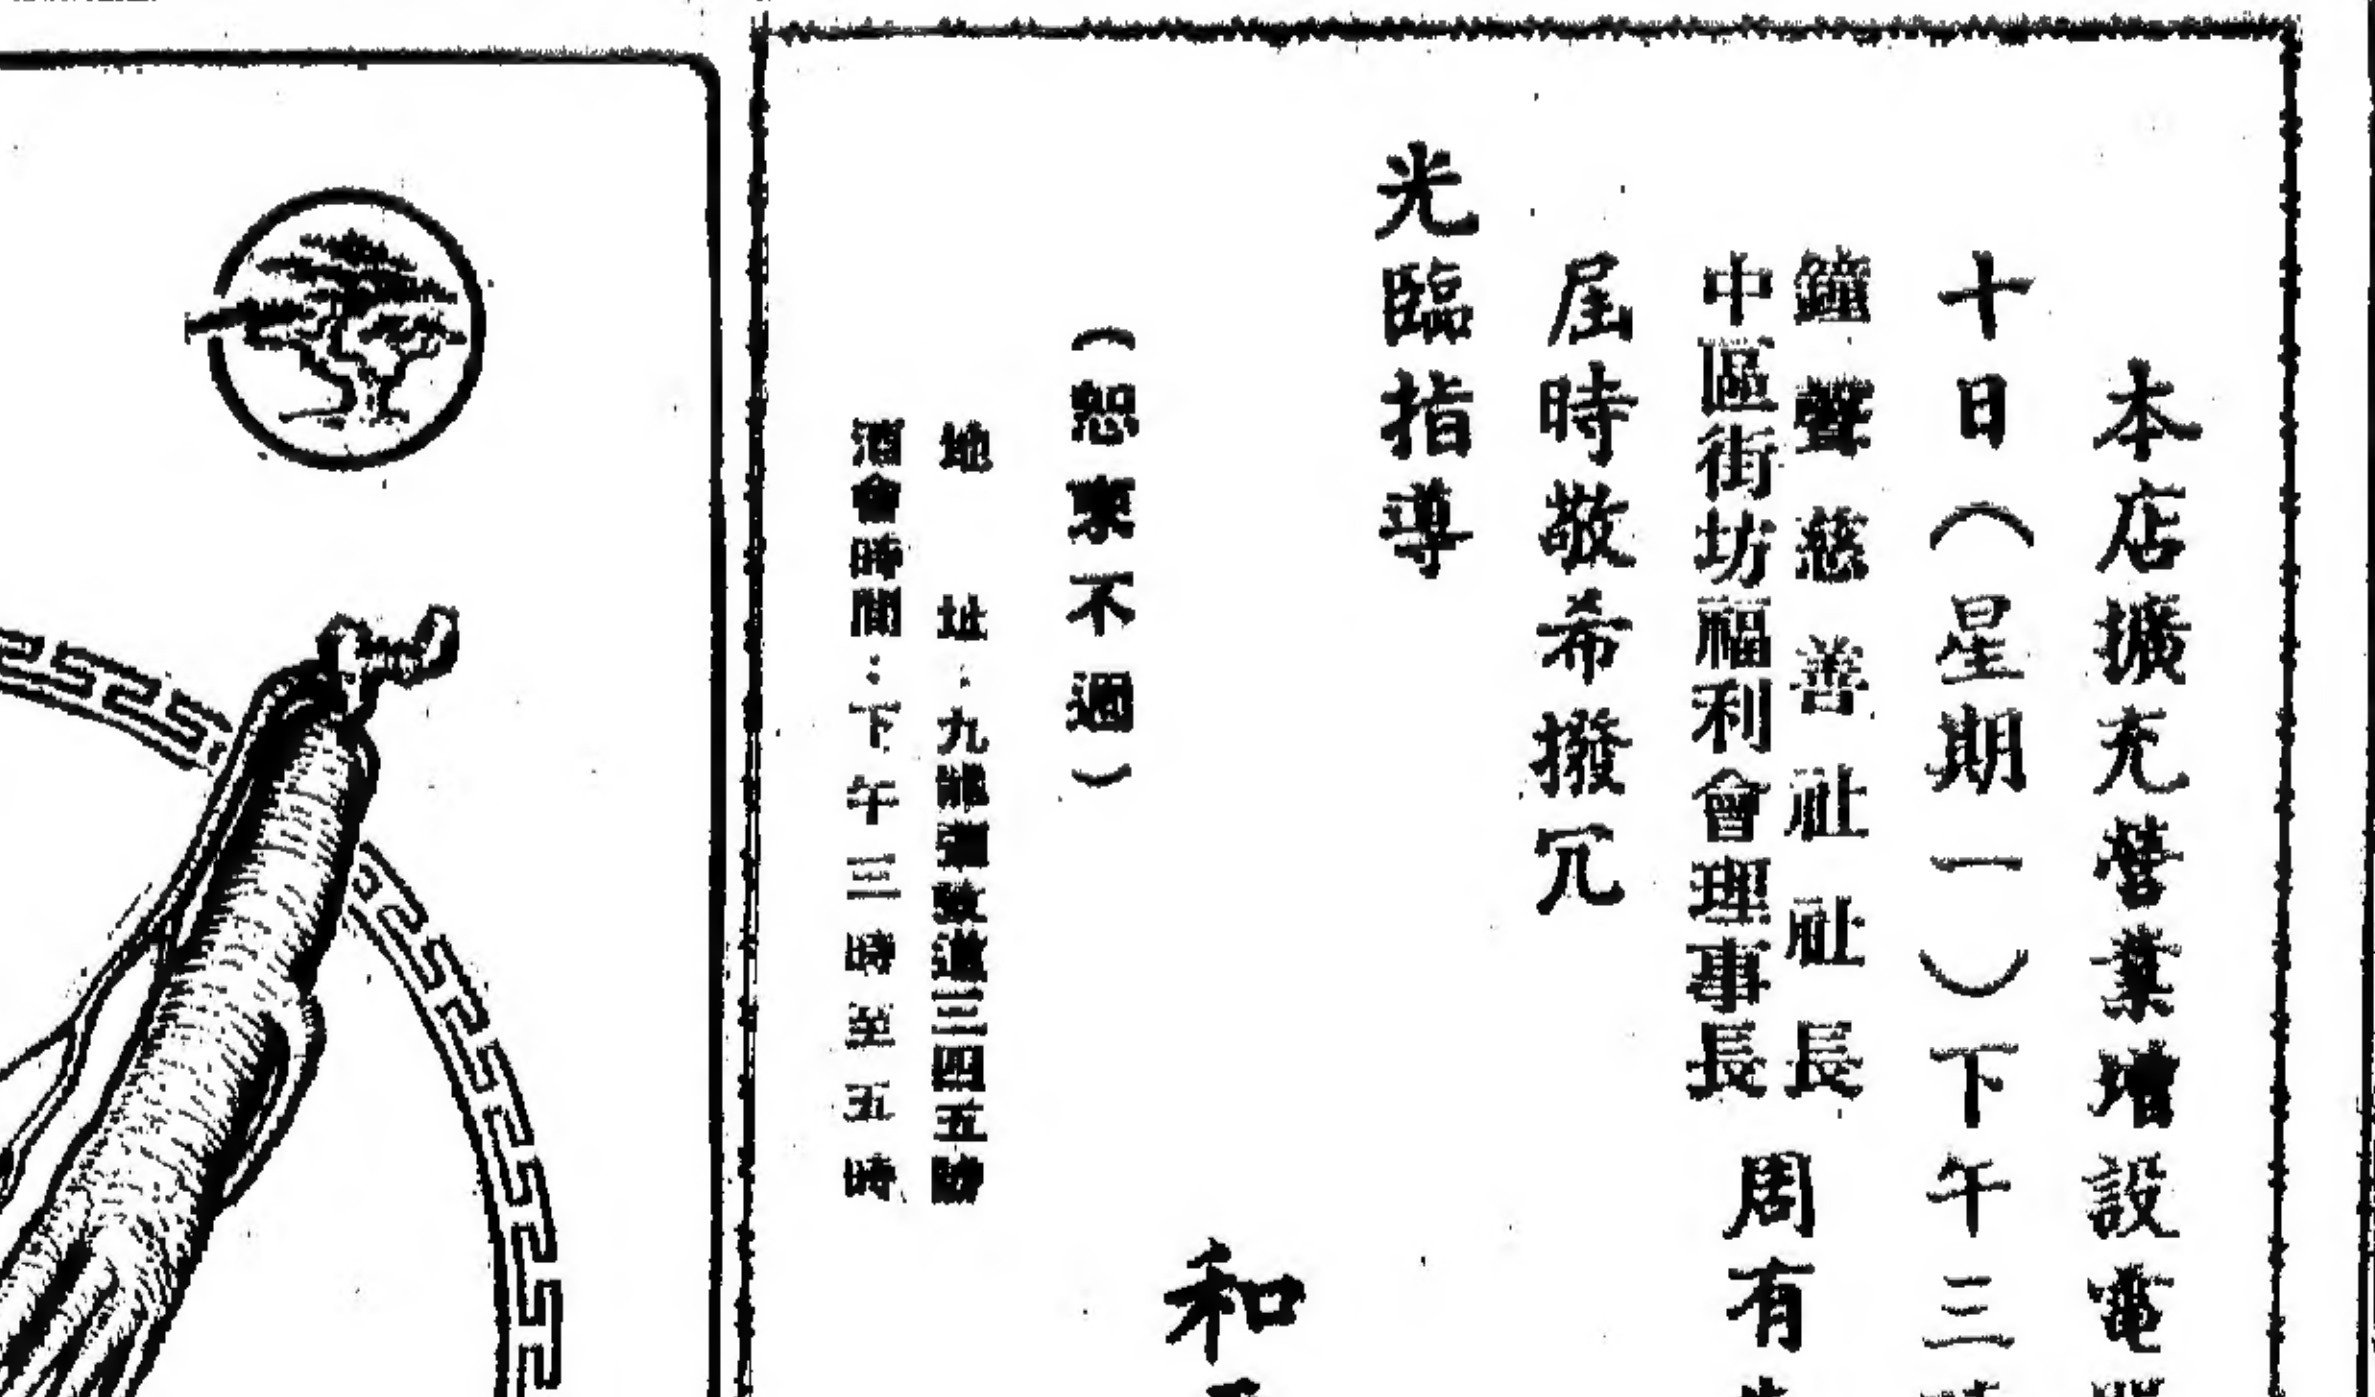 本店擴充營業增設電
十日（星期一）下午三
鐘聲慈善社社長
中區街坊福利會理事長
周有
屆時敬希撥冗
光臨指導
和
（恕柬不週）
地址：九龍彌敦道三四五號
酒會時間：下午三時至五時